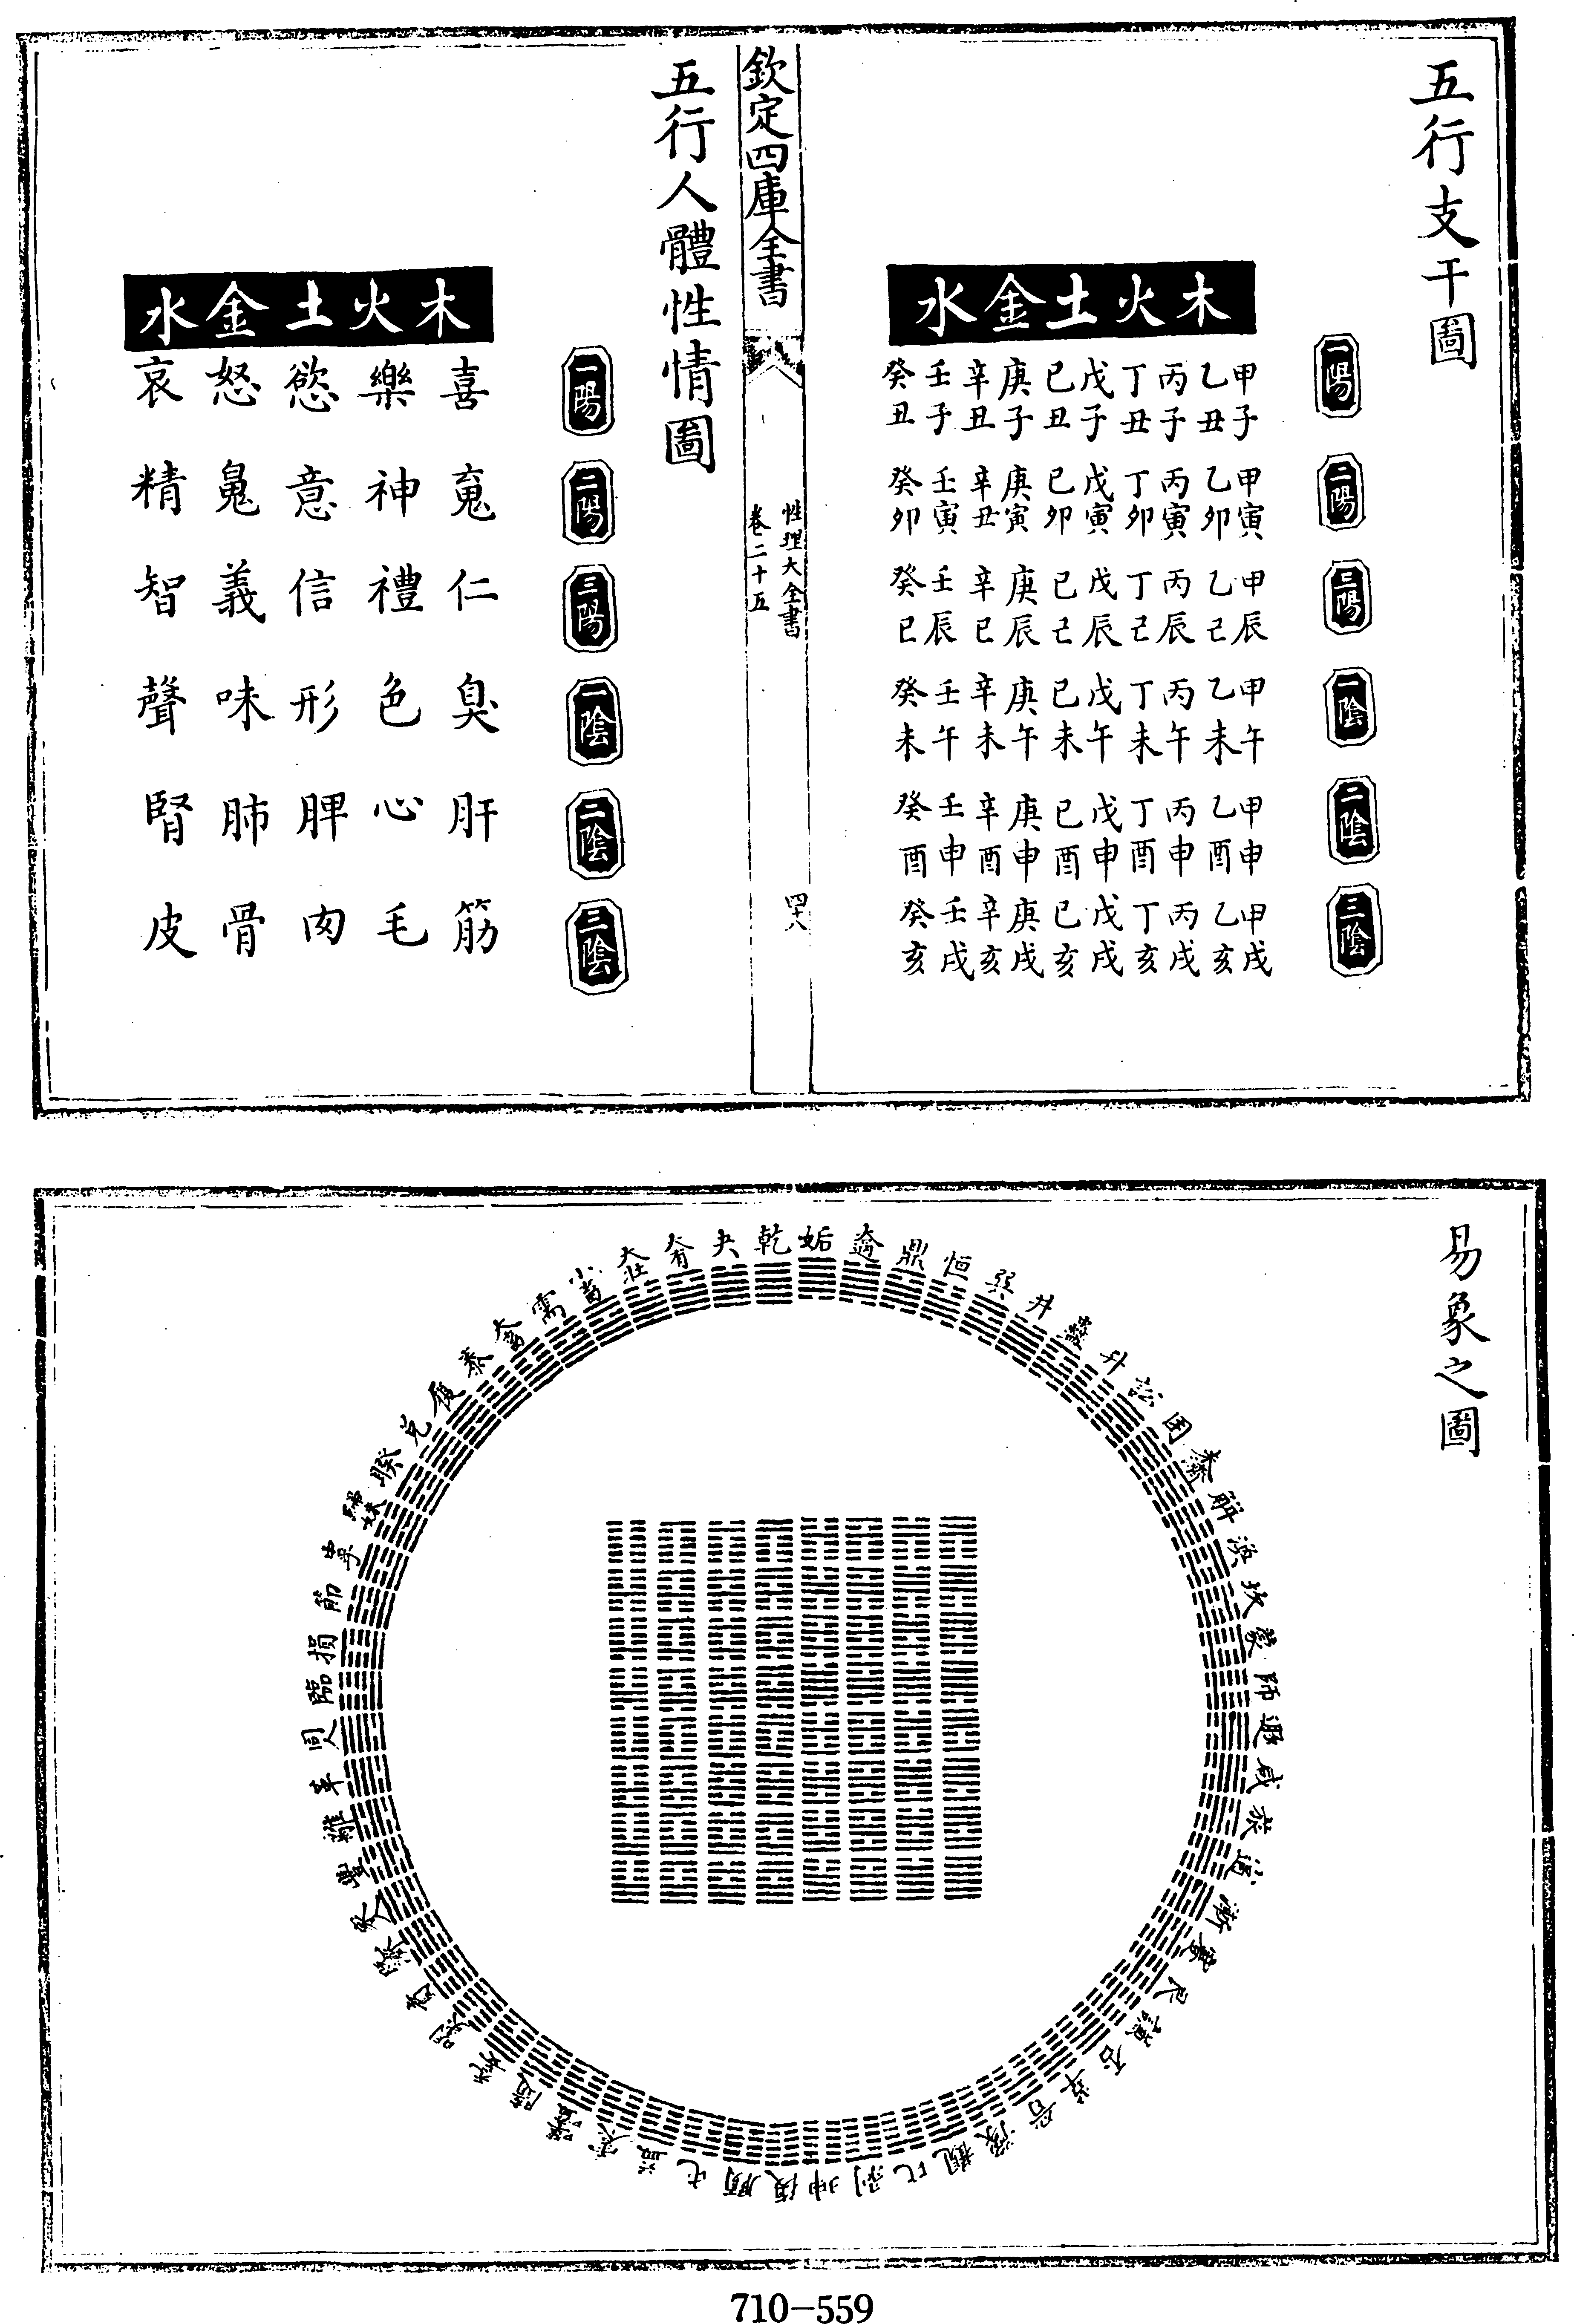 五行支干圖
一陽
二陽
三陽
一陰
二陰
三陰
木火土金水
甲子 乙丑 丙子 丁丑 戊子 已丑 庚子 辛丑 壬子 癸丑
甲寅 乙卯 丙寅 丁卯 戊寅 已卯 庚寅 辛丑 壬寅 癸卯
甲辰 乙己 丙辰 丁己 戊辰 已己 庚辰 辛巳 壬辰 癸巳
甲午 乙未 丙午 丁未 戊午 已未 庚午 辛未 壬午 癸未
甲申 乙酉 丙申 丁酉 戊申 已酉 庚申 辛酉 壬申 癸酉
甲戌 乙亥 丙戌 丁亥 戊戌 已亥 庚戌 辛亥 壬戌 癸亥
欽定四庫全書
性理大全書
卷二十五
四十八
五行人體性情圖
一陽
二陽
三陽
一陰
二陰
三陰
木火土金水
喜 樂 慾 怒 哀
䰟 神 意 鬽 精
仁 禮 信 義 智
臭 色 形 味 聲
肝 心 脾 肺 腎
筋 毛 肉 骨 皮
易象之圖
姤 大過 鼎 恒 巽 井 蠱 升 訟 困 未濟 解 渙 坎 蒙 師 遯 咸 旅 小過 漸 蹇 艮 謙 否 萃 晉 豫 觀 比 剝 坤
復 頤 屯 益 震 噬嗑 隨 无妄 明夷 賁 既濟 家人 豐 離 革 同人 臨 損 節 中孚 歸妹 睽 兌 履 泰 大畜 需 小畜 大壯 大有 夬 乾
710-559